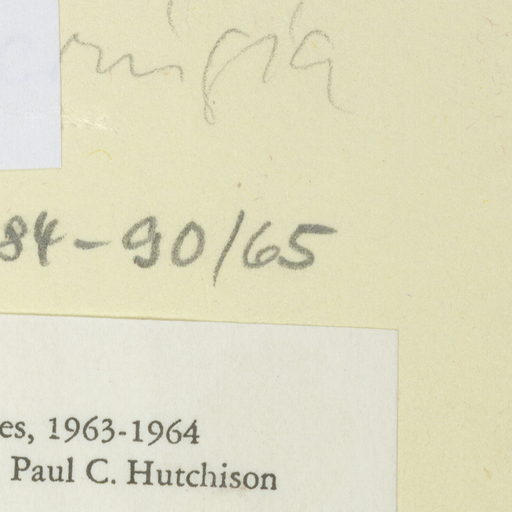 84-90/65
es, 1963-1964
Paul C. Hutchison